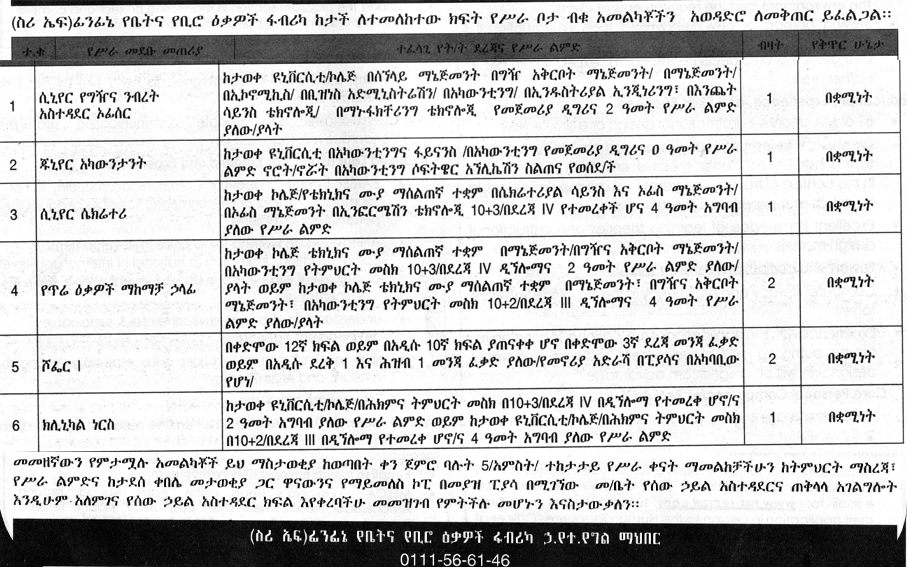 (ስሪ ኤፍ)ፊንፊኔ የቤትና የቢሮ ዕቃዎች ፋብሪካ ከታች ለተመለከተው ክፍት የሥራ ቦታ ብቁ አመልካቾችን አወዳድሮ ለመቅጠር ይፈልጋል፡፡
ተ.ቁ የሥራ መደቡ መጠሪያ ተፈላጊ የት/ት ደረጃና የሥራ ልምድ ብዛት የቅጥር ሁኔታ
1 ሲኒየር የግዥና ንብረት አስተዳደር ኦፊሰር
ከታወቀ ዩኒቨርሲቲ/ኮሌጅ በሰኘላይ ማኔጅመንት በግዥ አቅርቦት ማኔጅመንት/ በማኔጅመንት/
በኢኮኖሚክስ/ በቢዝነስ አድሚኒስትሬሽን/ በአካውንቲንግ/ በኢንዱስትሪያል ኢንጂነሪንግ፣ በእንጨት
ሳይንስ ቴክኖሎጂ/ በማኑፋክቸሪንግ ቴክኖሎጂ የመጀመሪያ ዲግሪና 2 ዓመት የሥራ ልምድ
ያለው/ያላት
1 በቋሚነት
2 ጁኒየር አካውንታንት
ከታወቀ ዩኒቨርሲቲ በአካውንቲንግና ፋይናንስ /በአካውንቲንግ የመጀመሪያ ዲግሪና ዐ ዓመት የሥራ
ልምድ ኖሮት/ኖሯት በአካውንቲንግ ሶፍትዌር አኘሊኬሽን ስልጠና የወሰደ/ች
1 በቋሚነት
3 ሲኒየር ሴክሬተሪ
ከታወቀ ኮሌጅ/የቴክኒክና ሙያ ማሰልጠኛ ተቋም በሴክሬተሪያል ሳይንስ እና ኦፊስ ማኔጅመንት/
በኦፊስ ማኔጅመንት በኢንፎርሜሽን ቴክኖሎጂ 10+3/በደረጃ IV የተመረቀች ሆና 4 ዓመት አግባብ
ያለው የሥራ ልምድ
1 በቋሚነት
4 የጥሬ ዕቃዎች ማከማቻ ኃላፊ
ከታወቀ ኮሌጅ ቴክኒክና ሙያ ማሰልጠኛ ተቋም በማኔጅመንት/በግዥና አቅርቦት ማኔጅመንት/
በአካውንቲንግ የትምህርት መስክ 10+3/በደረጃ IV ዲኘሎማና 2 ዓመት የሥራ ልምድ ያለው/
ያላት ወይም ከታወቀ ኮሌጅ ቴክኒክና ሙያ ማሰልጠኛ ተቋም በማኔጅመንት፣ በግዥና አቅርቦት
ማኔጅመንት፣ በአካውንቲንግ የትምህርት መስክ 10+2/በደረጃ III ዲኘሎማና 4 ዓመት የሥራ
ልምድ ያለው/ያላት
2 በቋሚነት
5 ሾፌር I
በቀድሞው 12ኛ ክፍል ወይም በአዲሱ 10ኛ ክፍል ያጠናቀቀ ሆኖ በቀድሞው 3ኛ ደረጃ መንጃ ፈቃድ
ወይም በአዲሱ ደረቅ 1 እና ሕዝብ 1 መንጃ ፈቃድ ያለው/የመኖሪያ አድራሻ በፒያሳና በአካባቢው
የሆነ/
2 በቋሚነት
6 ክሊኒካል ነርስ
ከታወቀ ዩኒቨርሲቲ/ኮሌጅ/በሕክምና ትምህርት መስክ በ10+3/በደረጃ IV በዲኘሎማ የተመረቀ ሆኖ/ና
2 ዓመት አግባብ ያለው የሥራ ልምድ ወይም ከታወቀ ዩኒቨርሲቲ/ኮሌጅ/በሕክምና ትምህርት መስክ
በ10+2/በደረጃ III በዲኘሎማ የተመረቀ ሆኖ/ና 4 ዓመት አግባብ ያለው የሥራ ልምድ
1 በቋሚነት
መመዘኛውን የምታሟሉ አመልካቾች ይህ ማስታወቂያ ከወጣበት ቀን ጀምሮ ባሉት 5/አምስት/ ተከታታይ የሥራ ቀናት ማመልከቻችሁን ከትምህርት ማስረጃ፣
የሥራ ልምድና ከታደሰ ቀበሌ መታወቂያ ጋር ዋናውንና የማይመለስ ኮፒ በመያዝ ፒያሳ በሚገኘው መ/ቤት የሰው ኃይል አስተዳደርና ጠቅላላ አገልግሎት
እንዲሁም አለምገና የሰው ኃይል አስተዳደር ክፍል እየቀረባችሁ መመዝገብ የምትችሉ መሆኑን እናስታውቃለን፡፡
(ስሪ ኤፍ)ፊንፊኔ የቤትና የቢሮ ዕቃዎች ፋብሪካ ኃ.የተ.የግል ማህበር
0111-56-61-46